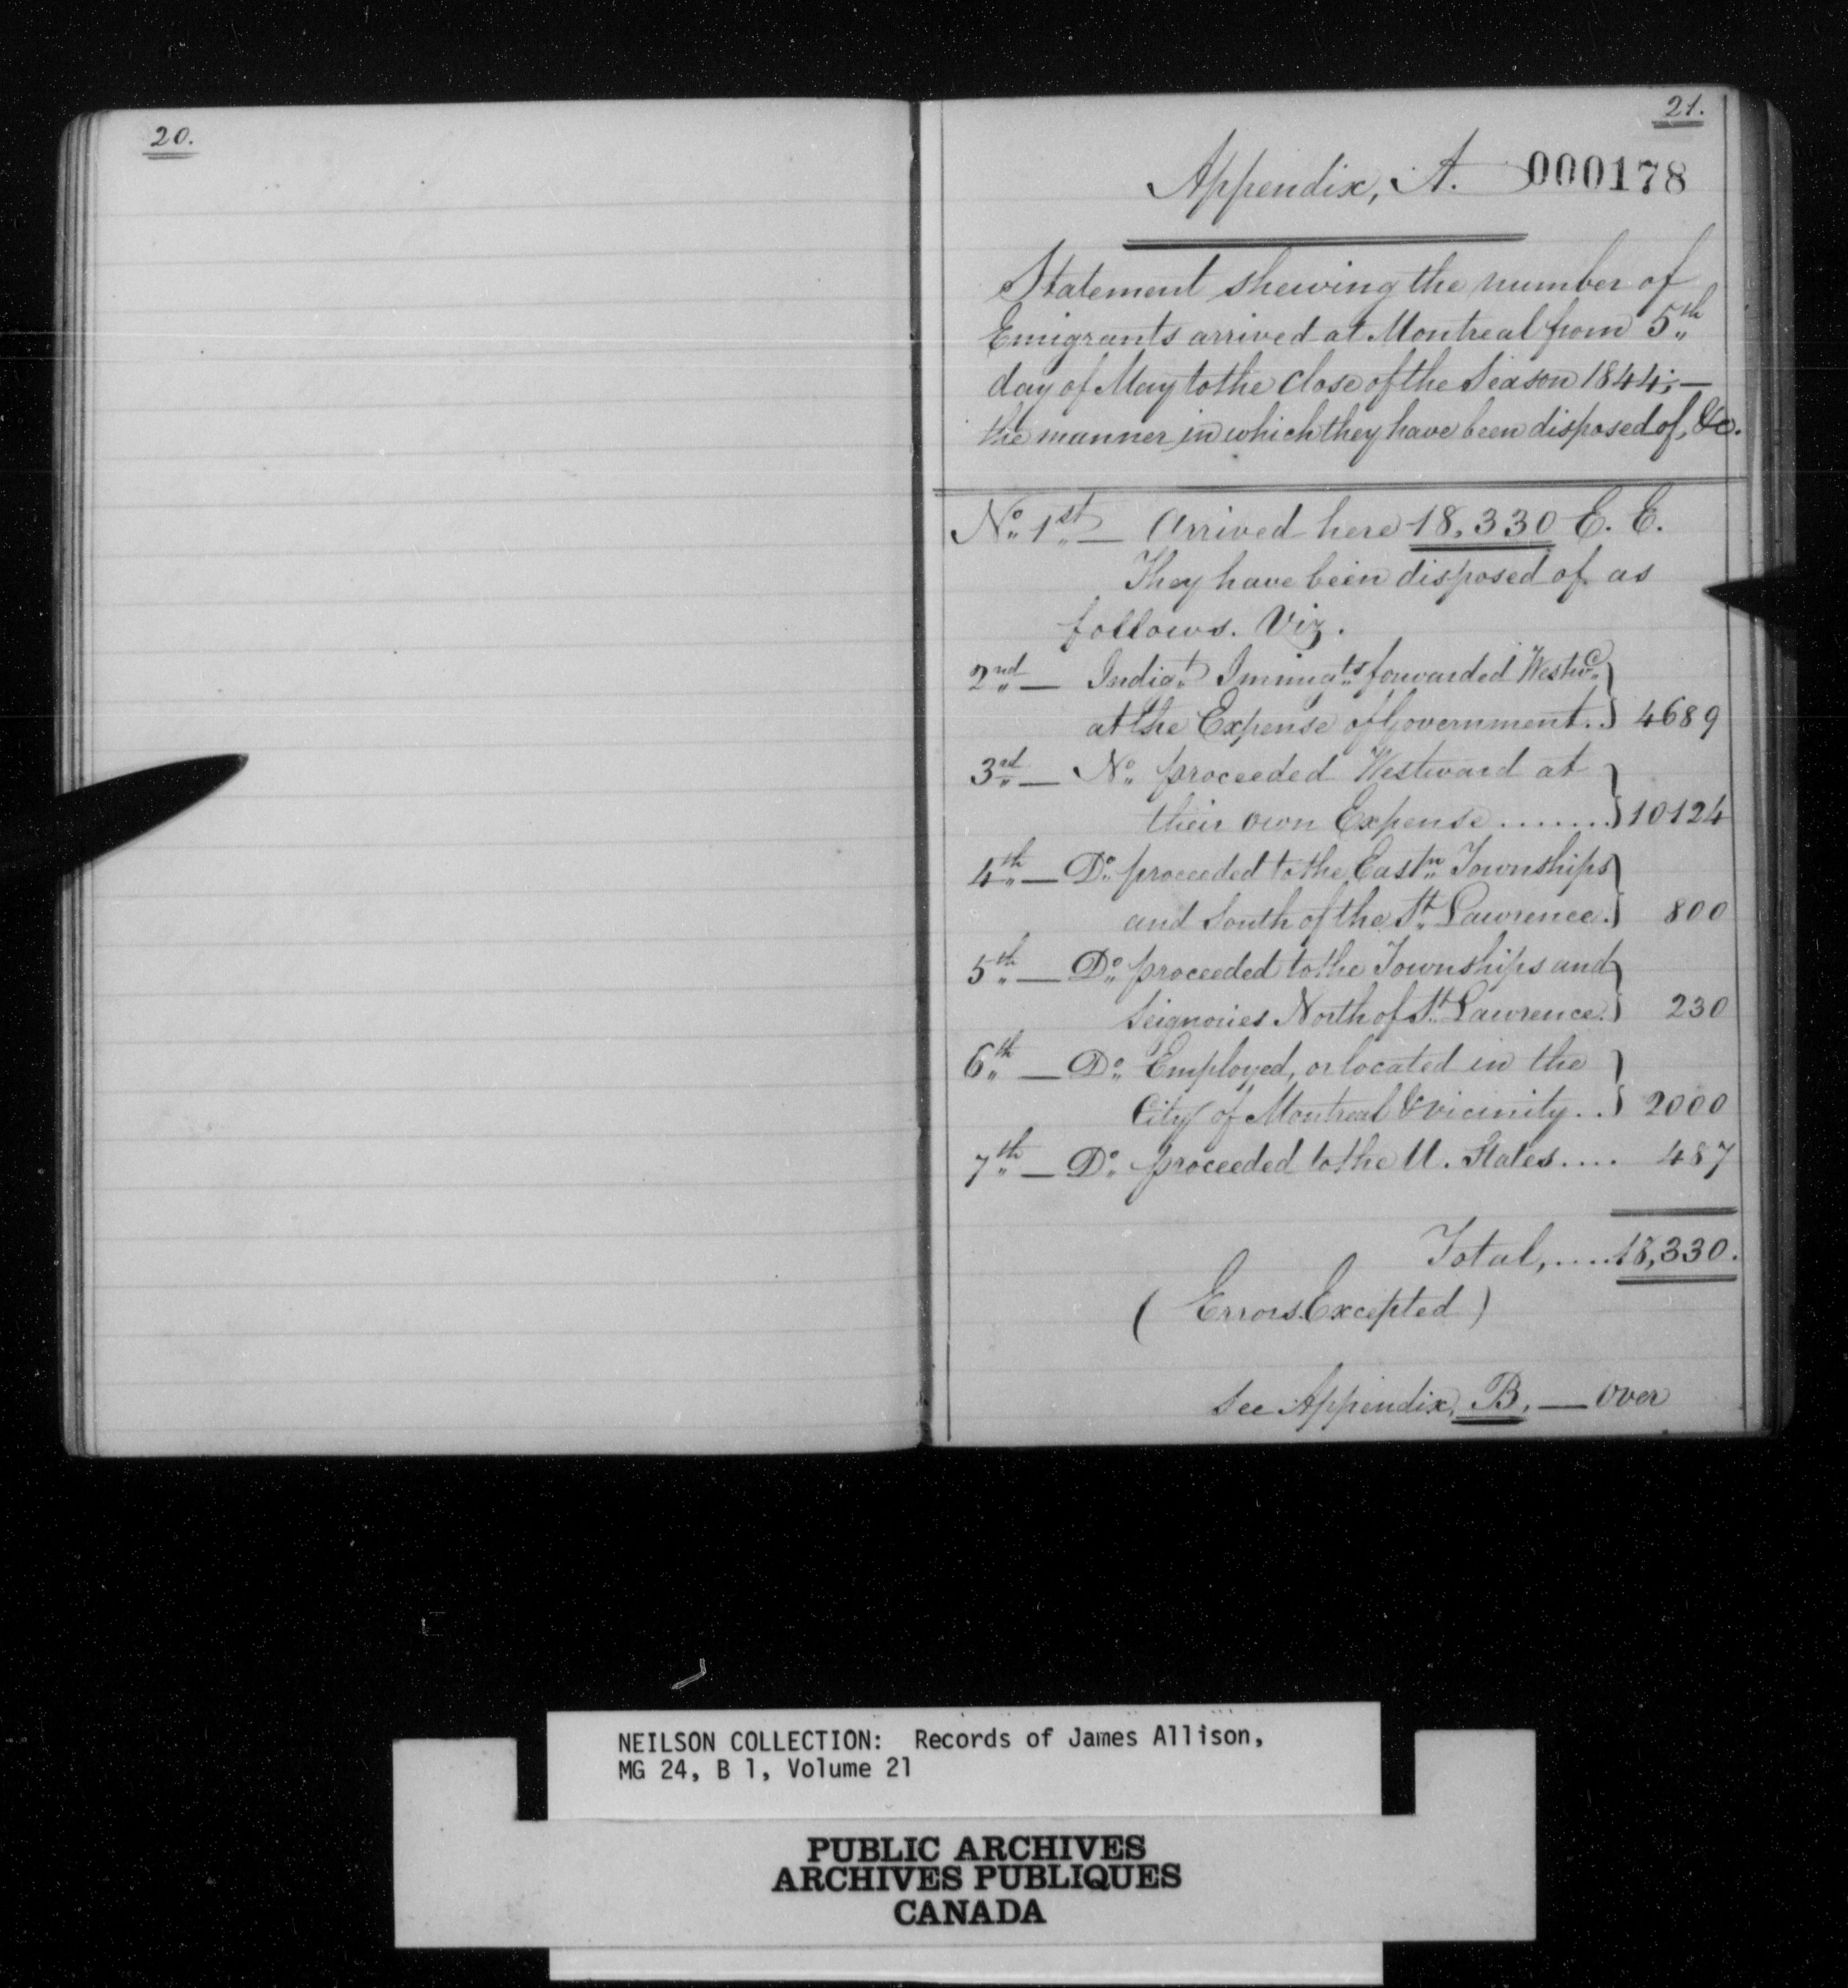 20.
21.
Appendix, A. 000178
Statement shewing the number of
Emigrants arrived at Montreal from 5th
day of May to the Close of the Season 1844; —
the manner in which they have been disposed of, &c.
No. 1st — Arrived here 18,330 E. E.
They have been disposed of as
follows. Viz.
2nd — Indigt. Immigts. forwarded Westwd.
at the Expense of Government.. 4689
3rd — No. proceeded Westward at
their own Expense ....... 10124
4th — Do. proceeded to the Eastn. Townships
and South of the St. Lawrence. 800
5th — Do. proceeded to the Townships and
Seignories North of St. Lawrence. 230
6th — Do. Employed, or located in the
City of Montreal & vicinity.. 2000
7th — Do. proceeded to the U. States.... 487
Total,.... 18,330.
( Errors Excepted )
See Appendix, B, — Over
NEILSON COLLECTION: Records of James Allison,
MG 24, B 1, Volume 21
PUBLIC ARCHIVES
ARCHIVES PUBLIQUES
CANADA